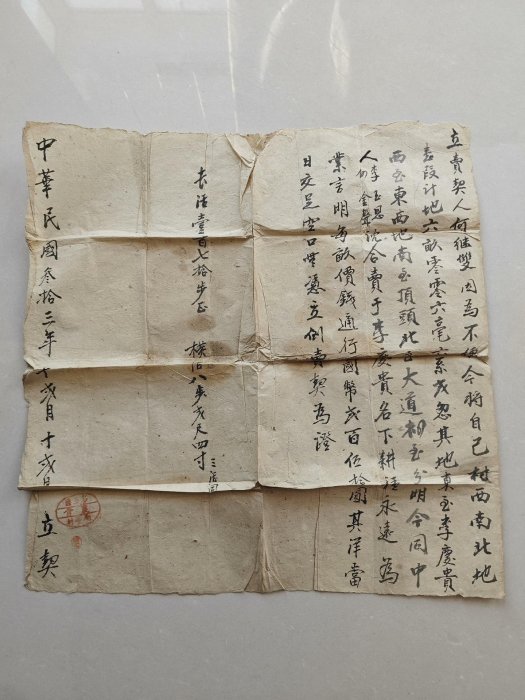 立賣契人何継雙因為不便今將自己村西南北地
壹段計地六畝零零六毫六系弍忽其地東至李慶貴
西至東西地南至頂頭北至大道相至分明今同中
人李玉恩 何金聲說合賣于李慶貴名下耕種永遠為
業言明每畝價錢通行國幣弍百伍拾圓其洋當
日交足空口無憑立倒賣契為證
長活壹百七拾步正 橫活八步弍尺四寸 三活同
中華民國叁拾三年十弍月十弍日 立契